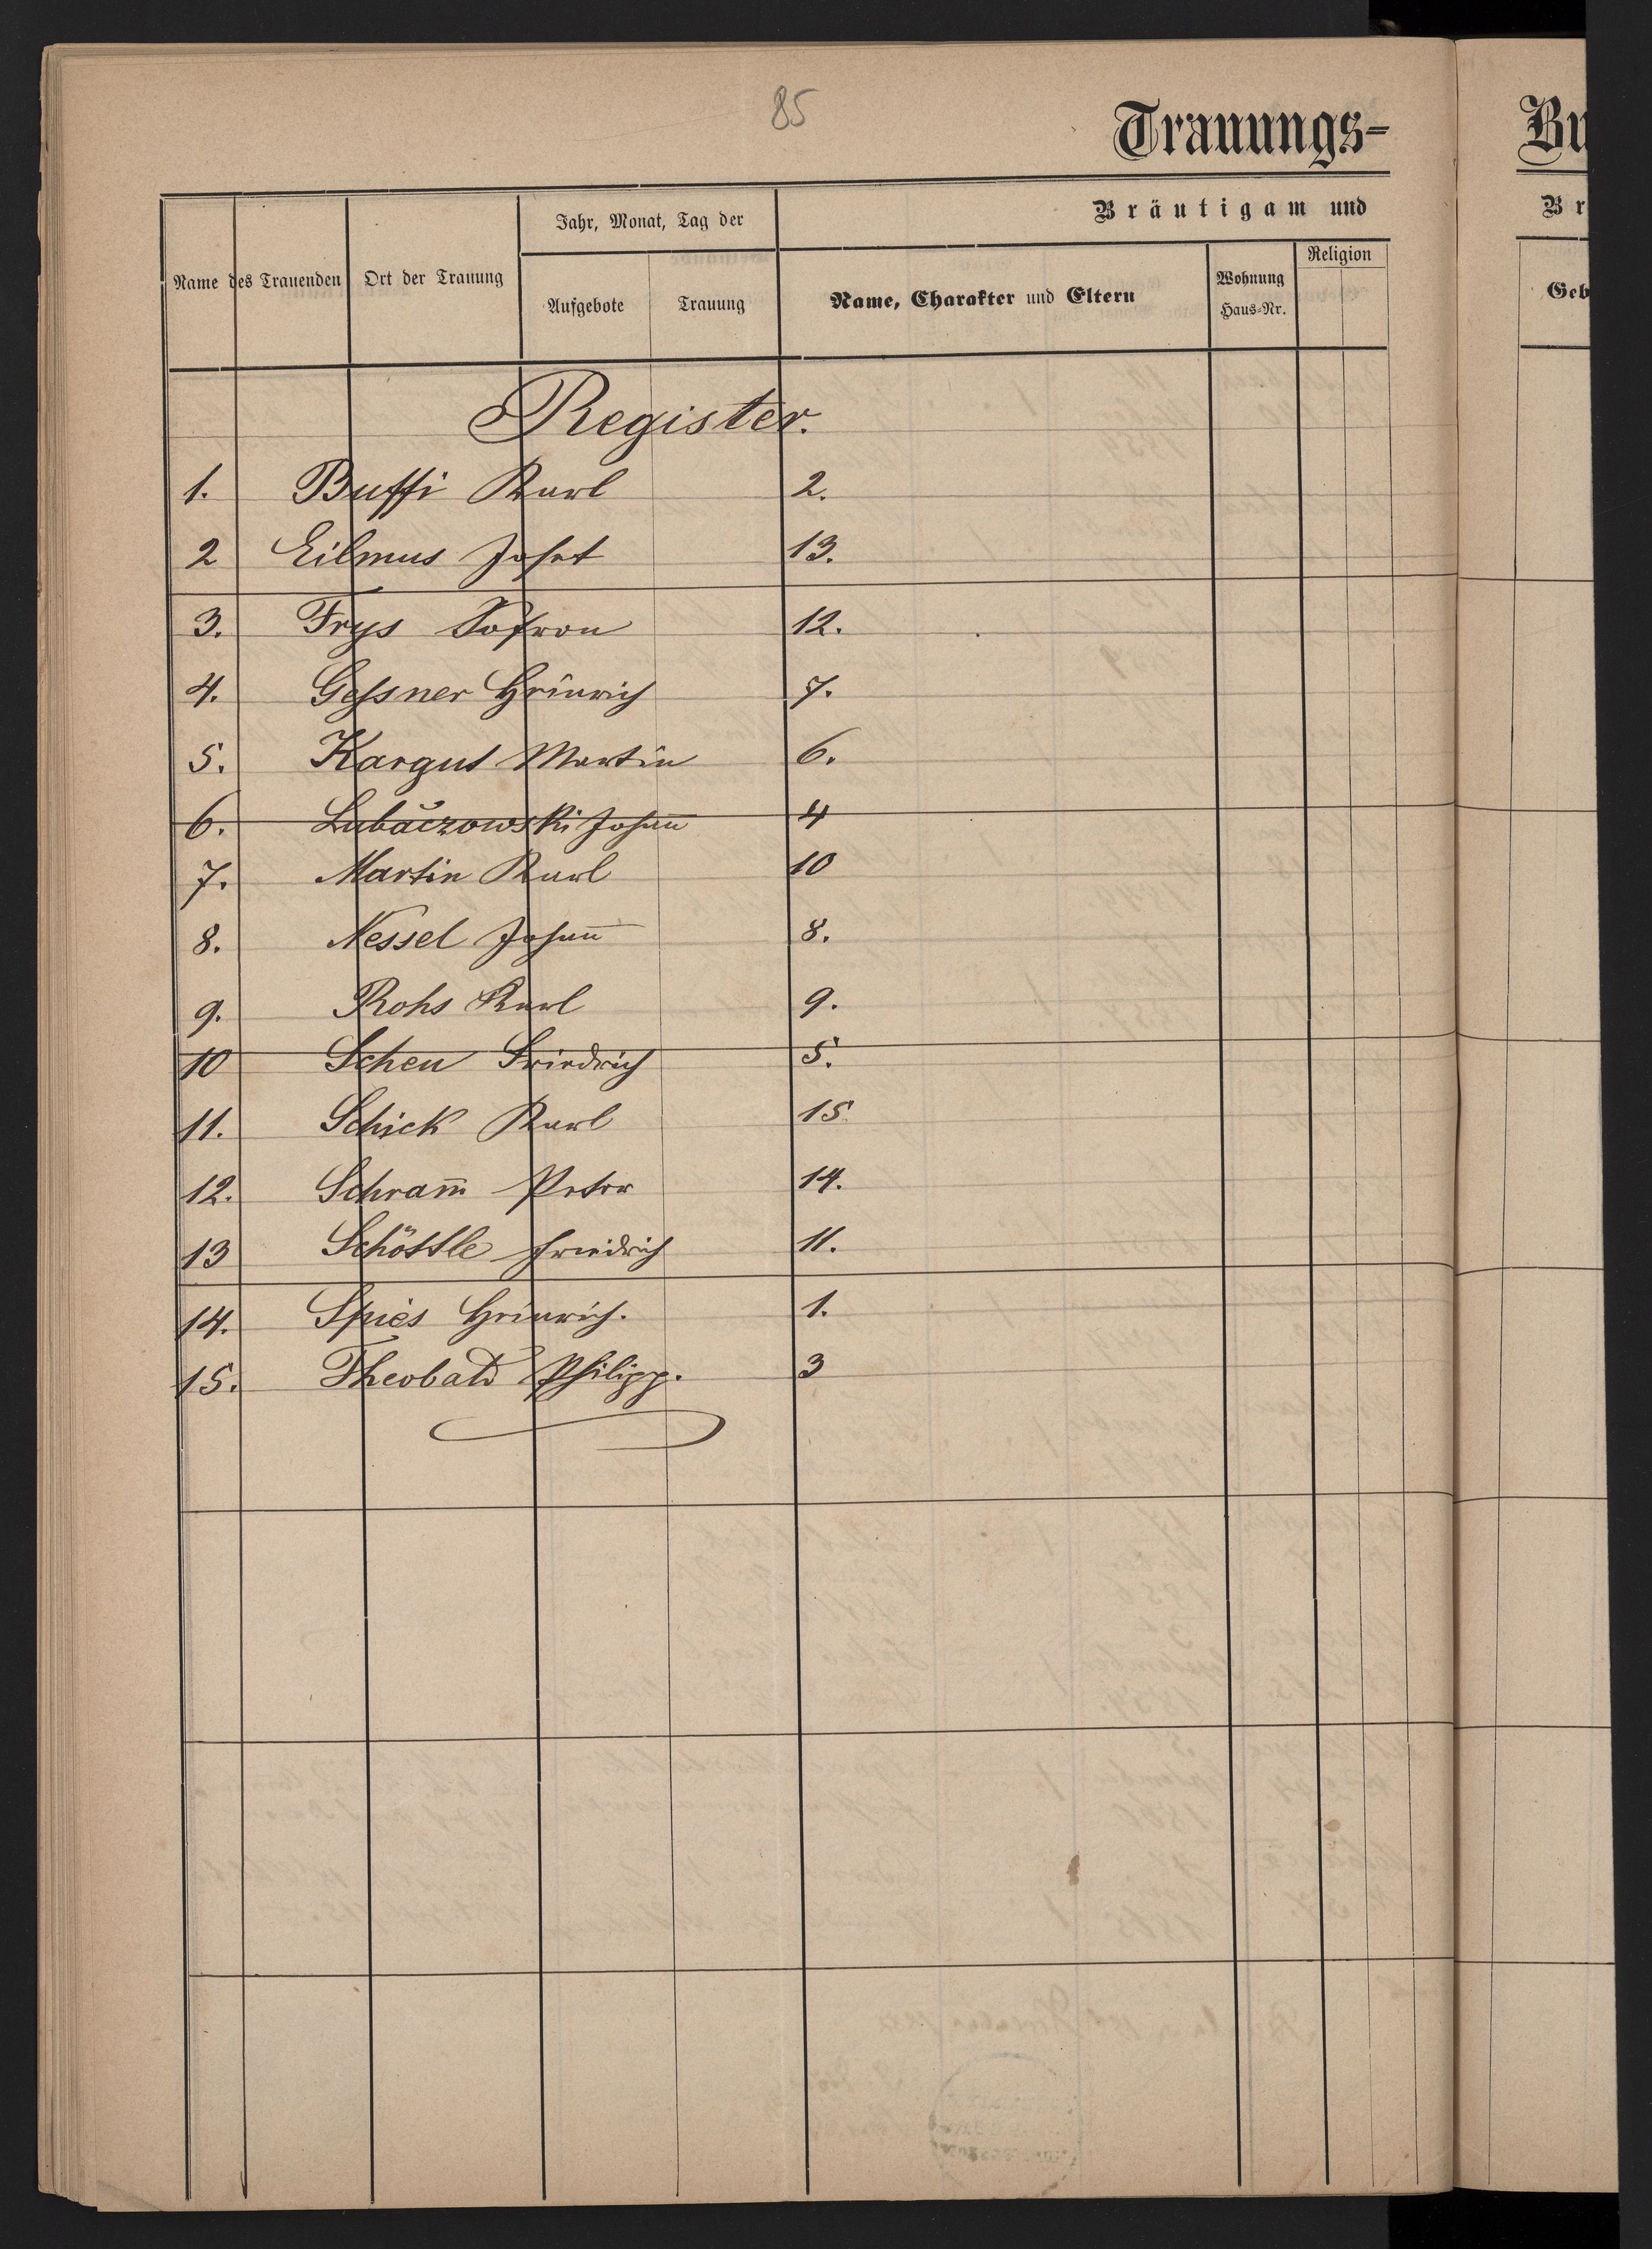 85
Trauungs-
Bu
Name des Trauenden
Ort der Trauung
Jahr, Monat, Tag der
Aufgebote
Trauung
Bräutigam und
Name, Charakter und Eltern
Wohnung
Haus-Nr.
Religion
Br
Geb
Register.
1. Buffi Karl 2.
2 Eilmus Josef 13.
3. Frys Sofron 12.
4. Gessner Heinrich 7.
5. Kargut Martin 6.
6. Lubaczowski Johañ 4
7. Martin Karl 10
8. Nessel Johañ 8.
9. Rohs Karl 9.
10 Scheu Friedrich 5.
11. Schick Karl 15.
12. Schram̄ Peter 14.
13 Schöttle Friedrich 11.
14. Spies Heinrich. 1.
15. Theobald Philipp. 3